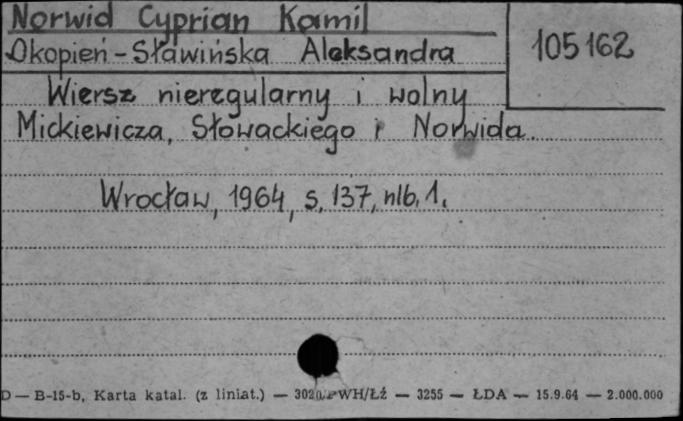 Norwid Cyprian Kamil
Okopień-Sławińska Aleksandra
105162
Wiersz nieregularny i wolny
Mickiewicza, Słowackiego i Norwida.
Wrocław, 1964, s. 137, nlb. 1.
D — B-15-b, Karta katal. (z liniat.) — 3020/PWH/Łź — 3255 — ŁDA — 15.9.64 — 2.000.000